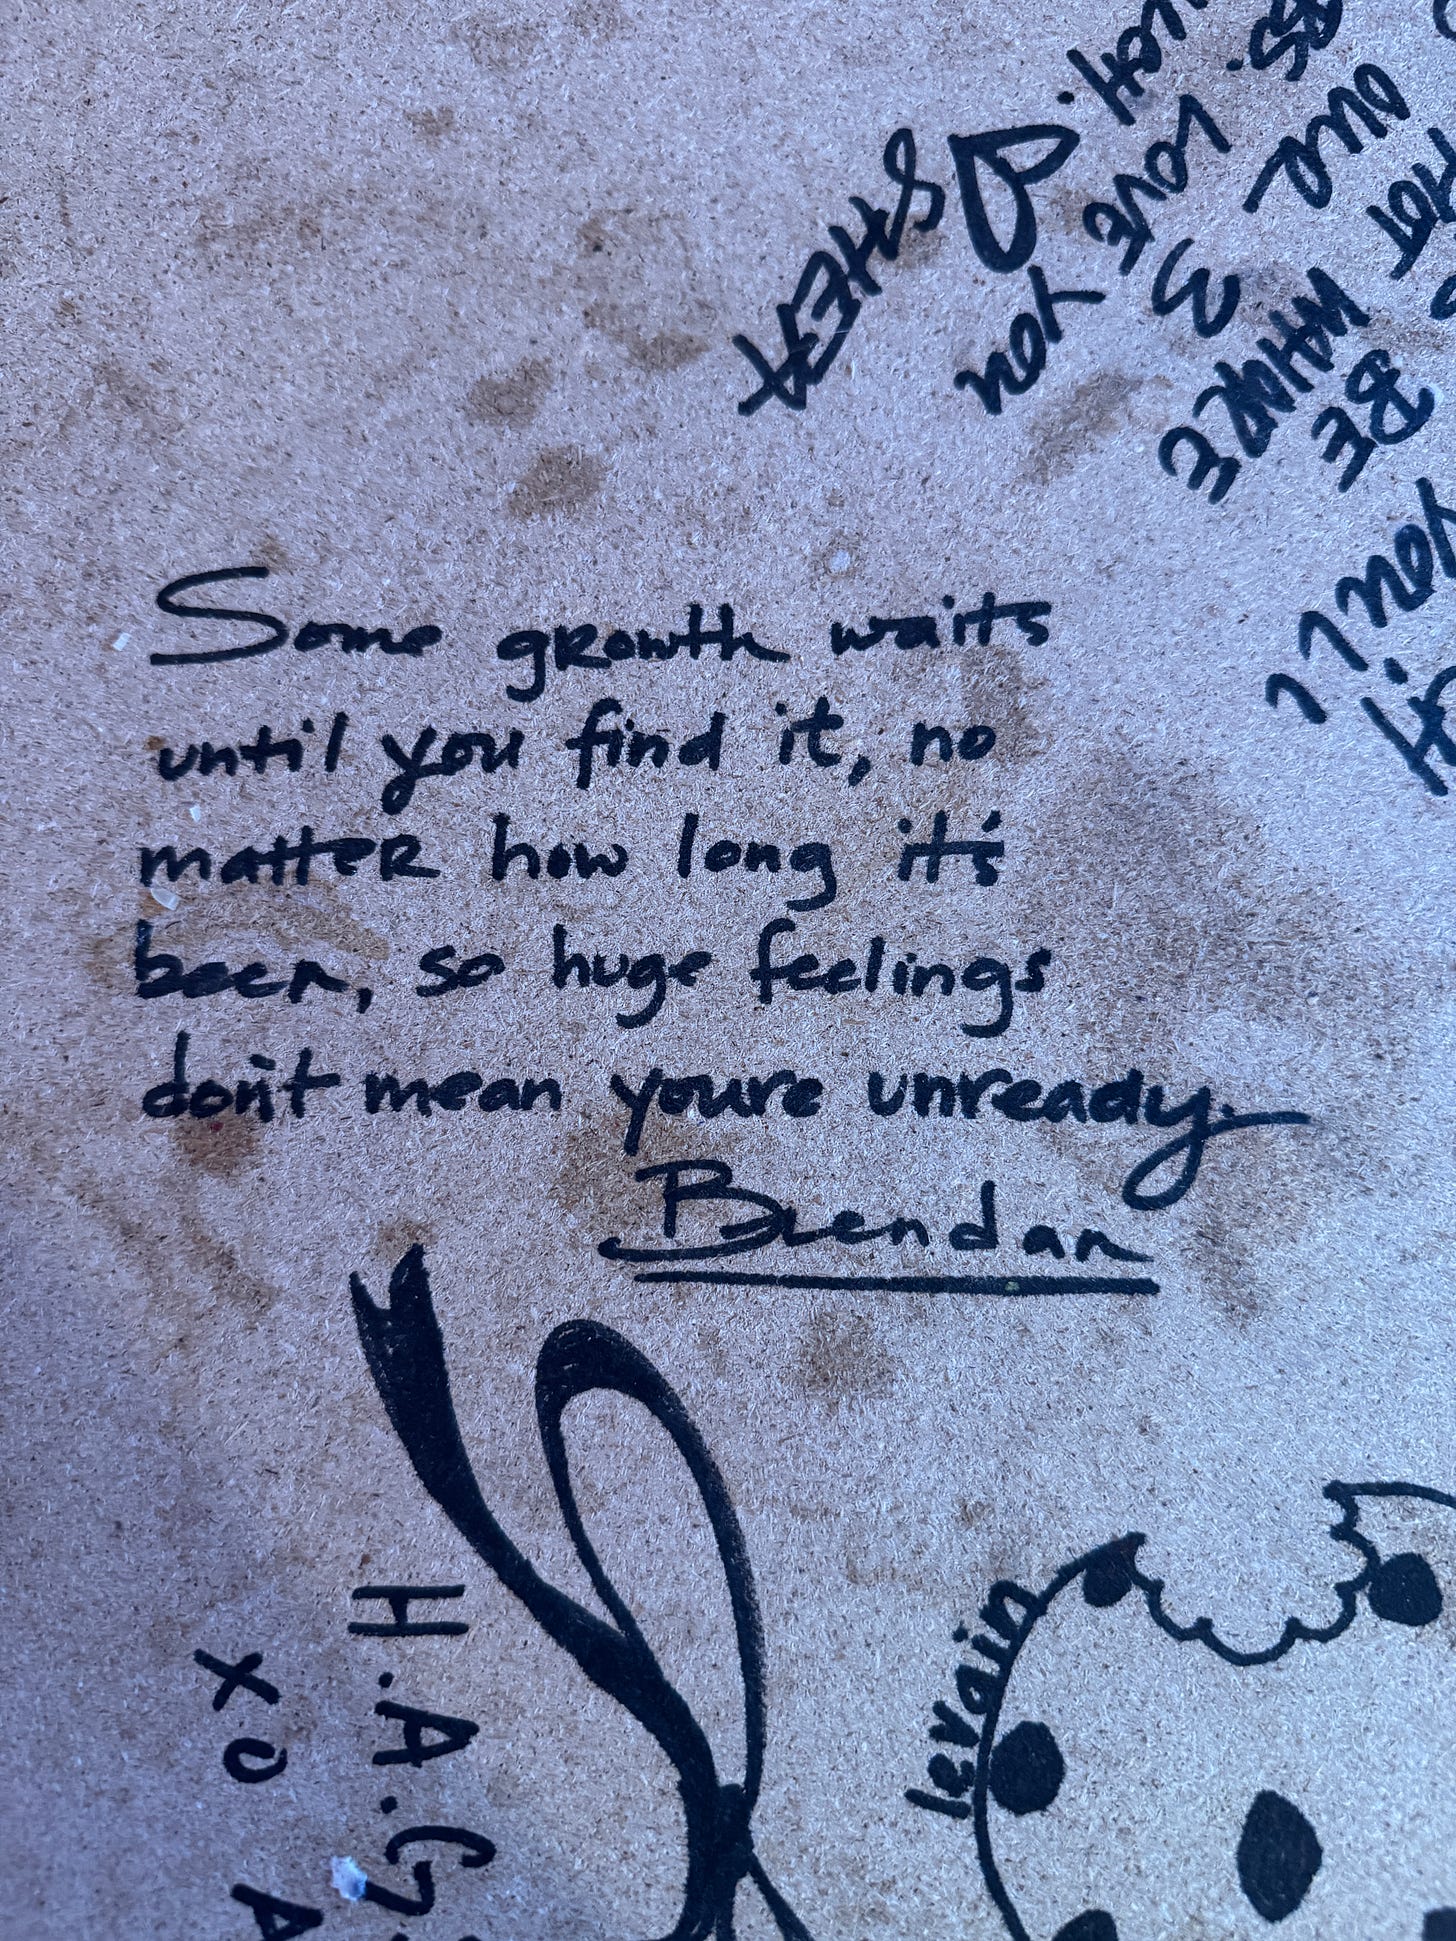 Some growth waits
until you find it, no
matter how long it's
been, so huge feelings
don't mean youre unready.
Brendan
YOU'LL
BE
MAKE
OUR
LOVE
YOU
SHEA
levain
H.A.G
XO
A